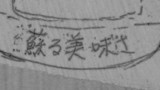 蘇る美味さ